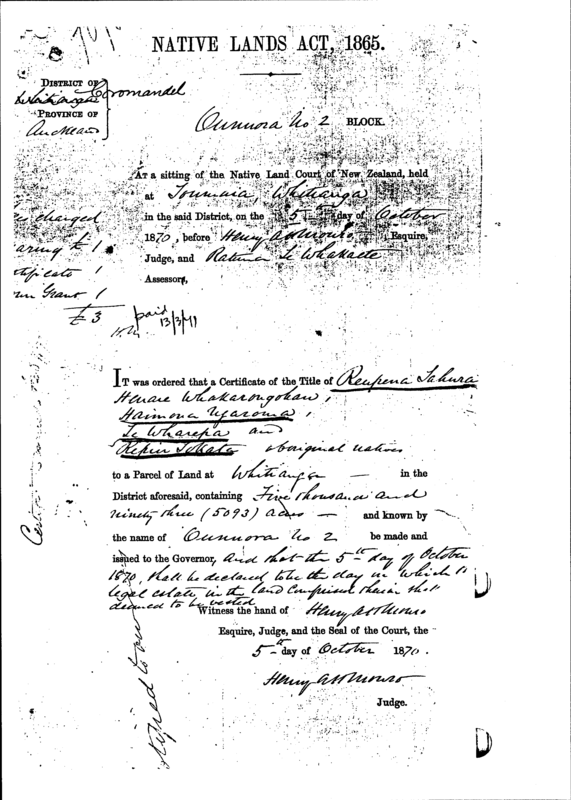 NATIVE LANDS ACT, 1865.
DISTRICT OF
Coromandel
PROVINCE OF
Auckland
Ounuora No 2 BLOCK.
AT a sitting of the Native Land Court of New Zealand, held
at Whitianga
in the said District, on the 5th day of October
1870, before Henry A H Monro Esquire,
Judge, and Ratima Te Whakaete
Assessor,
charged
1
1
Grant 1
£3
paid
13/3/71
IT was ordered that a Certificate of the Title of Reupena Tahura
Henare Whakarongohau,
Haimona Ngaroma,
Te Wharepa and
aboriginal natives
to a Parcel of Land at Whitianga — in the
District aforesaid, containing Five thousand and
ninety three (5093) acres — and known by
the name of Ounuora No 2 be made and
issued to the Governor, and that the 5th day of October
1870, shall be declared to be the day on which the
legal estate in the land comprised therein shall
deemed to be vested
Witness the hand of Henry A H Monro
Esquire, Judge, and the Seal of the Court, the
5th day of October 1870.
Henry A H Monro
Judge.